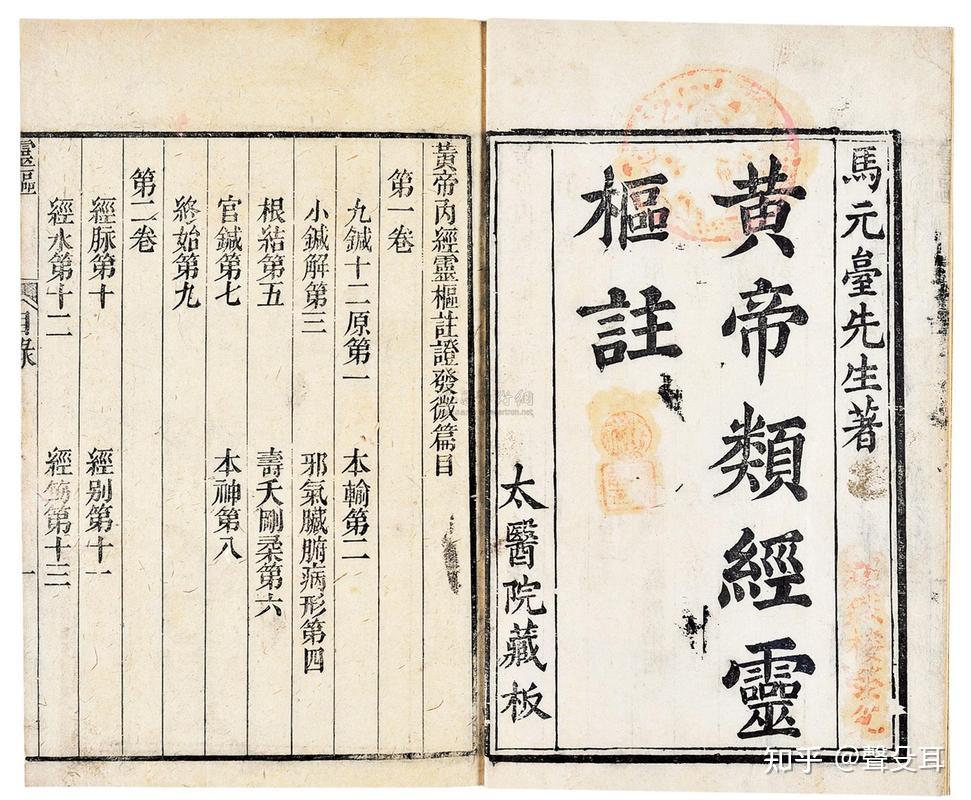 馬元臺先生著
黃帝類經靈
樞註
太醫院藏板
黃帝內經靈樞註證發微篇目
第一卷
九鍼十二原第一
本輸第二
小鍼解第三
邪氣臟腑病形第四
根結第五
壽夭剛柔第六
官鍼第七
本神第八
終始第九
第二卷
經脉第十
經别第十一
經水第十二
經筋第十三
靈樞
目錄
一
知乎 @聲殳耳